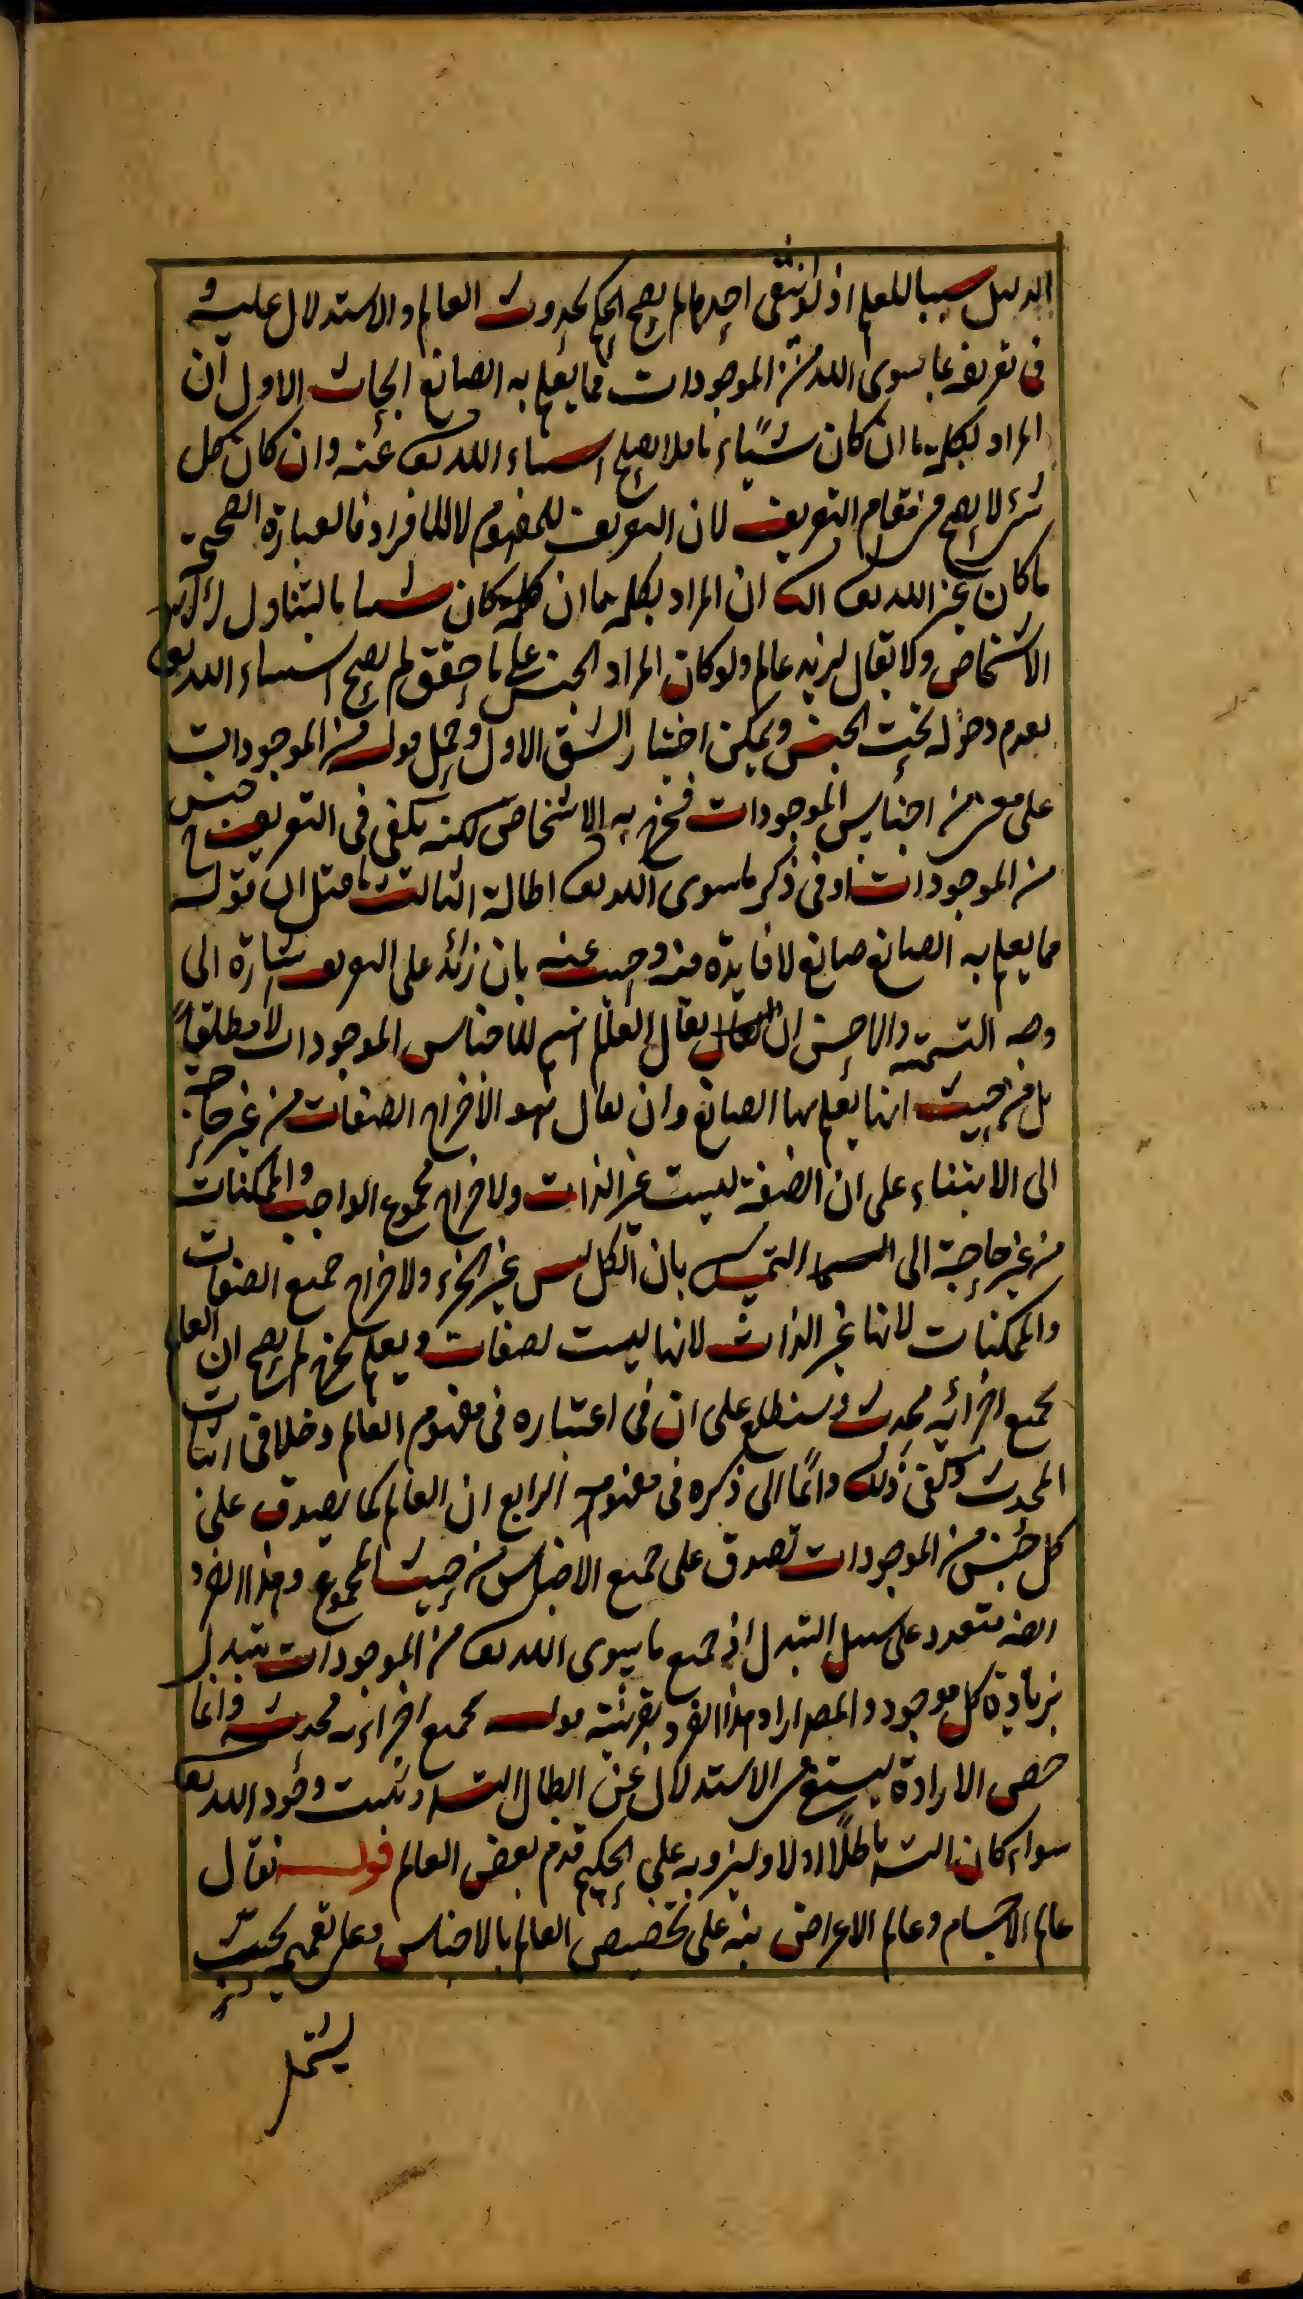 الدليل سببا للعلم اذ لو انتفى احدهما لم يصح الحكم بحدوث العالم والاستدلال عليه و
فى تعريفه بما سوى الله من الموجودات مما يعلم به الصانع ابحاث الاول ان
المراد بكلمة ما ان كان شياء ما فلا يصح استثناء الله تع عنه وان كان كل
شئ لا يصح فى مقام التعريف لان التعريف للمفهوم لا للافراد فالعبارة الصحيحة
ما كان غير الله تع الثانى ان المراد بكلمة ما ان كان شيئا ما يتناول
الاشخاص ولا يقال لزيد عالم ولو كان المراد الجنس على ما حقق لم يصح استثناء الله تع
لعدم دخوله تحت الجنس ويمكن اختيار الشق الاول وحمل قوله من الموجودات
على معنى من اجناس الموجودات فيخرج به الاشخاص لكنه يكفى فى التعريف ح جنس
من الموجودات وفى ذكر ما سوى الله تع اطالة الثالث ما قيل ان قوله
مما يعلم به الصانع صانع لا فايدة فيه واجيب عنه بان زائد على التعريف اشارة الى
وجه التسمية والاحسن ان يقال العالم اسم للاجناس الموجودات لا مطلقا
بل من حيث انها يعلم بها الصانع وان يقال هو لاخراج الصفات من غير حاجة
الى الابتناء على ان الصفة ليست غير الذات ولاخراج مجموع الواجب والممكنات
من غير حاجة الى التمسك بان الكل ليس غير الجزء ولاخراج جميع الصفات
والممكنات لانها غير الذات لانها ليست لصفات ويعلم لم يصح ان العالم
بجميع اجزائه محدث وستطلع على ان فى اعتباره فى مفهوم العالم دخلا فى اثبات
المحدث وكفى ذلك داعيا الى ذكره فى مفهومه الرابع ان العالم كما يصدق على
كل جنس من الموجودات تصدق على جميع الاجناس من حيث المجموع وهذا الفرد
ايضه متعدد على سبيل التبدل اذ جميع ما سوى الله تع من الموجودات يتبدل
بزيادة كل موجود والمصه اراد هذا الفرد بقرينة قوله بجميع اجزائه محدث وانما
خص الارادة ليستغنى الاستدلال عن ابطال التسه ويثبت وجود الله تع
سواء كان التسه باطلا او لا وليزد به على الحكيم قدم بعض العالم قوله يقال
عالم الاجسام وعالم الاعراض نبه على تخصيص العالم بالاجناس وعلى تعميمه بحيث
يشمل